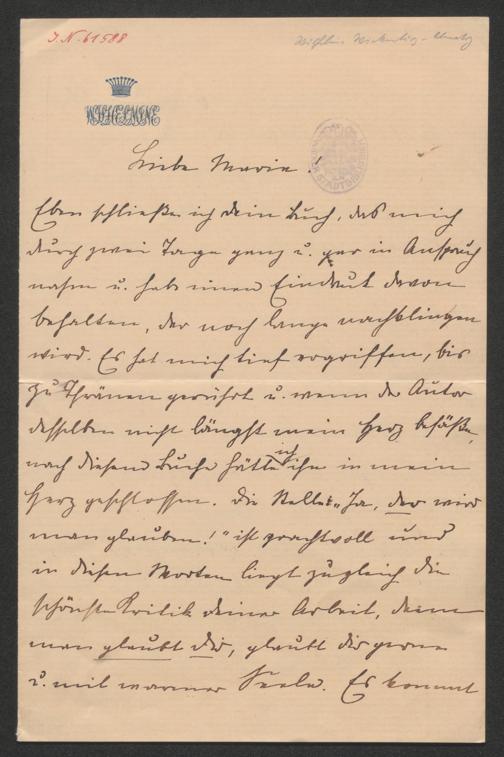 I.N. 61588
WILHELMINE
Liebe Marie!
Eben schließe ich dein Buch, das mich
durch zwei Tage ganz u. gar in Anspruch
nahm u. habe einen Eindruck davon
behalten, der noch lange nachklingen
wird. Es hat mich tief ergriffen, bis
zu Thränen gerührt u. wenn der Autor
desselben nicht längst mein Herz besäße,
nach diesem Buche hätte ich ihn in mein
Herz geschlossen. Die Stelle: "Ja, der wird
man glauben!" ist prachtvoll und
in diesen Worten liegt zugleich die
schönste Kritik deiner Arbeit, denn
man glaubt dir, glaubt dir gerne
u. mit warmer Seele. Es kommt